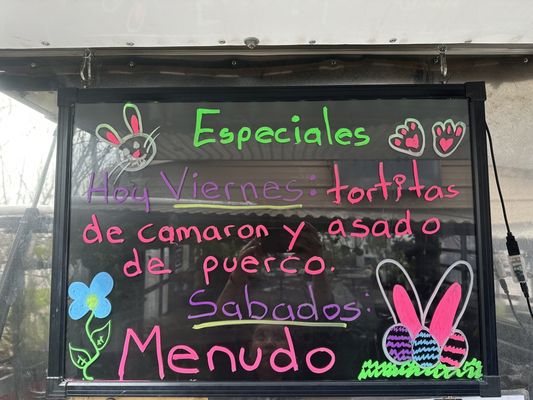 Especiales
Hoy Viernes: tortitas
de camaron y asado
de puerco.
Sabados:
Menudo